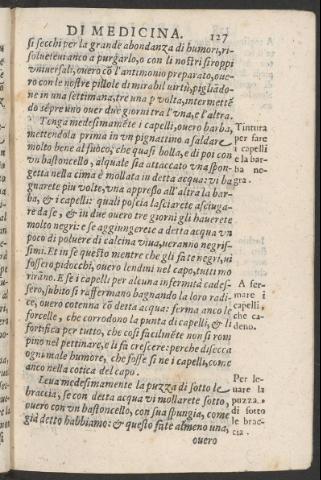 DI MEDICINA. 127
si secchi per la grande abondanza di humori, ri-
solueteui anco a purgarlo, o con li nostri siroppi
vniuersali, ouero cõ l'antimonio preparato, oue-
ro con le nostre pillole di mirabil virtù, pigliãdo-
ne in vna settimana, tre vna p volta, intermettẽ
do sẽpre vno ouer due giorni tra l'vna, e l'altra.
Tenga medesimamẽte i capelli, ouero barba,
mettendola prima in vn pignattino a saldare
molto bene al fuoco, che quasi bolla, e di poi con
vn bastoncello, al quale sia attaccato vna spon-
getta nella cima è mollata in detta acqua: vi ba
guarete piu volte, vna appresso all'altra la bar-
ba, & i capelli: quali poscia lasciarete asciuga-
re da se, & in due ouero tre giorni gli hauerete
molto negri: e se aggiungerete a detta acqua vn
poco di poluere di calcina viua, ueranno negrif-
simi. Et in se questo mentre che gli fate negri, ui
fossero pidocchi, ouero lendini nel capo, tutti mo
rirano. E se i capelli per alcuna infermità cades-
sero, subito si raffermano bagnando la loro radi
ce, ouero cotenna cõ detta acqua: ferma anco le
forcelle, che corrodono la punta di capelli, & li
fortifica per tutto, che cosi facilmẽte non si rom
pino nel pettinare, e li fa crescere: perche disecca
ogni male humore, che fosse si ne i capelli, come
anco nella cotica del capo.
Leua medesimamente la puzza di sotto le
braccia, se con detta acqua vi mollarete sotto,
ouero con vn bastoncello, con sua spungia, come
già detto habbiamo: & questo fate almeno una,
ouero
Tintura
per fare
i capelli
e la bar-
ba ne-
gra.
A fer-
mare i
capelli,
che ca-
deno.
Per le-
uare la
puzza
di sotto
le brac-
cia.